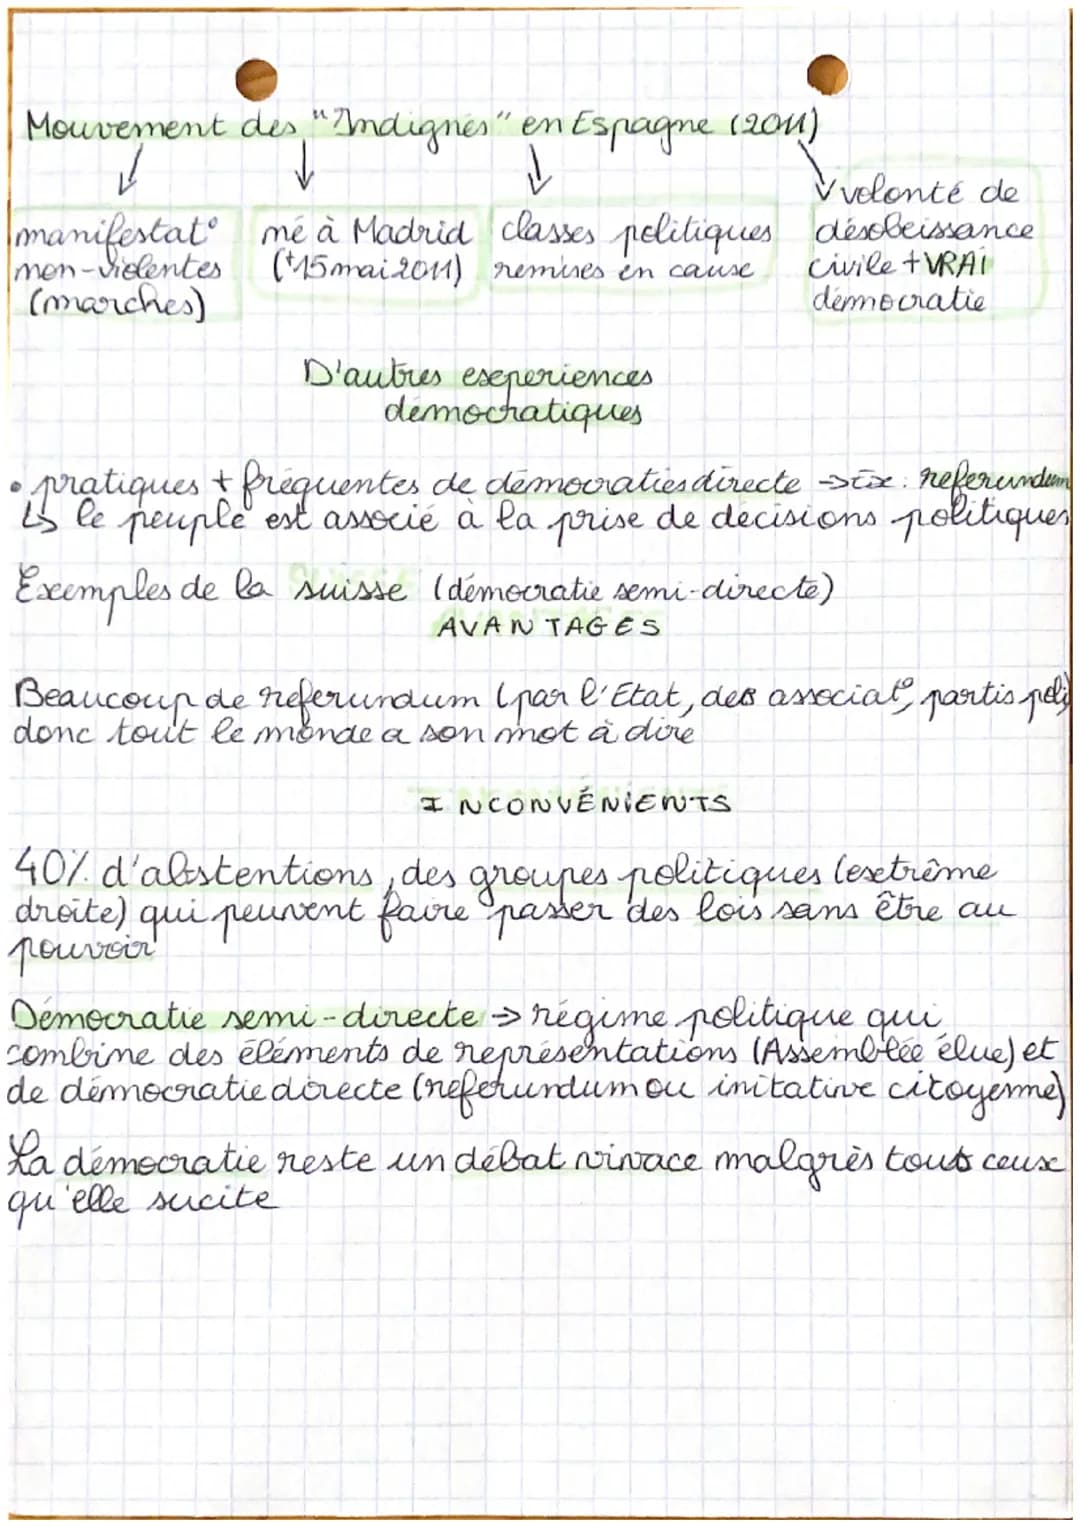 Mouvement des "Indignés" en Espagne (2011)
manifestat°
non-violentes
(marches)
né à Madrid
(15 mai 2011)
classes politiques
remises en cause
volonté de
désobeissance
civile + VRAI
démocratie
D'autres experiences
démocratiques
• pratiques + fréquentes de démocraties directe → Ex : referundum
↳ le peuple est associé à la prise de décisions politiques
Exemples de la suisse (démocratie semi-directe)
AVANTAGES
Beaucoup de referundum (par l'Etat, des associat°, partis poli)
donc tout le monde a son mot à dire
INCONVÉNIENTS
40% d'abstentions, des groupes politiques (extrême
droite) qui peuvent faire passer des lois sans être au
pouvoir
Démocratie semi-directe → régime politique qui
combine des éléments de représentations (Assemblée élue) et
de démocratie directe (referundum ou initative citoyenne)
La démocratie reste un débat vivace malgrès tout ceux
qu'elle sucite